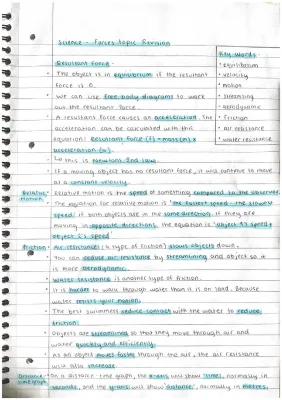 Science - Forces topic Revision
Key Words
• equilibrium
• velocity
• motion
• streamlining
• aerodynamic
• friction
• air resistance
• water resistance
Resultant force -
• The object is in equilibrium if the resultant
force is 0.
• We can use free body diagrams to work
out the resultant force.
• A resultant force causes an acceleration. The
acceleration can be calculated with this
equation: Resultant force (f) = mass(m) x
acceleration (a).
• This is Newtons 2nd law.
• If a moving object has no resultant force, it will continue to move
at a constant velocity.
Relative Motion
• Relative motion is the speed of something compared to the observer.
• The equation for relative motion is 'the fastest speed - the slowest
speed' if both objects are in the same direction. If they are
moving in opposite directions, the equation is 'object 1's speed +
object 2's speed
Friction
• Air resistance (A type of friction) slows objects down.
• You can reduce air resistance by streamlining and object so it
is more aerodynamic.
• Water resistance is another type of friction.
• It is harder to walk through water than it is on land, because
water resists your motion.
• The best swimmers reduce contact with the water to reduce
friction.
• Objects are streamlined so that they move through air and
water quickly and efficiently.
• As an object moves faster through the air, the air resistance
will also increase.
Distance-time graph
• On a distance-time graph, the x-axis will show 'time', normally in
seconds, and the y-axis will show 'distance', normally in metres.